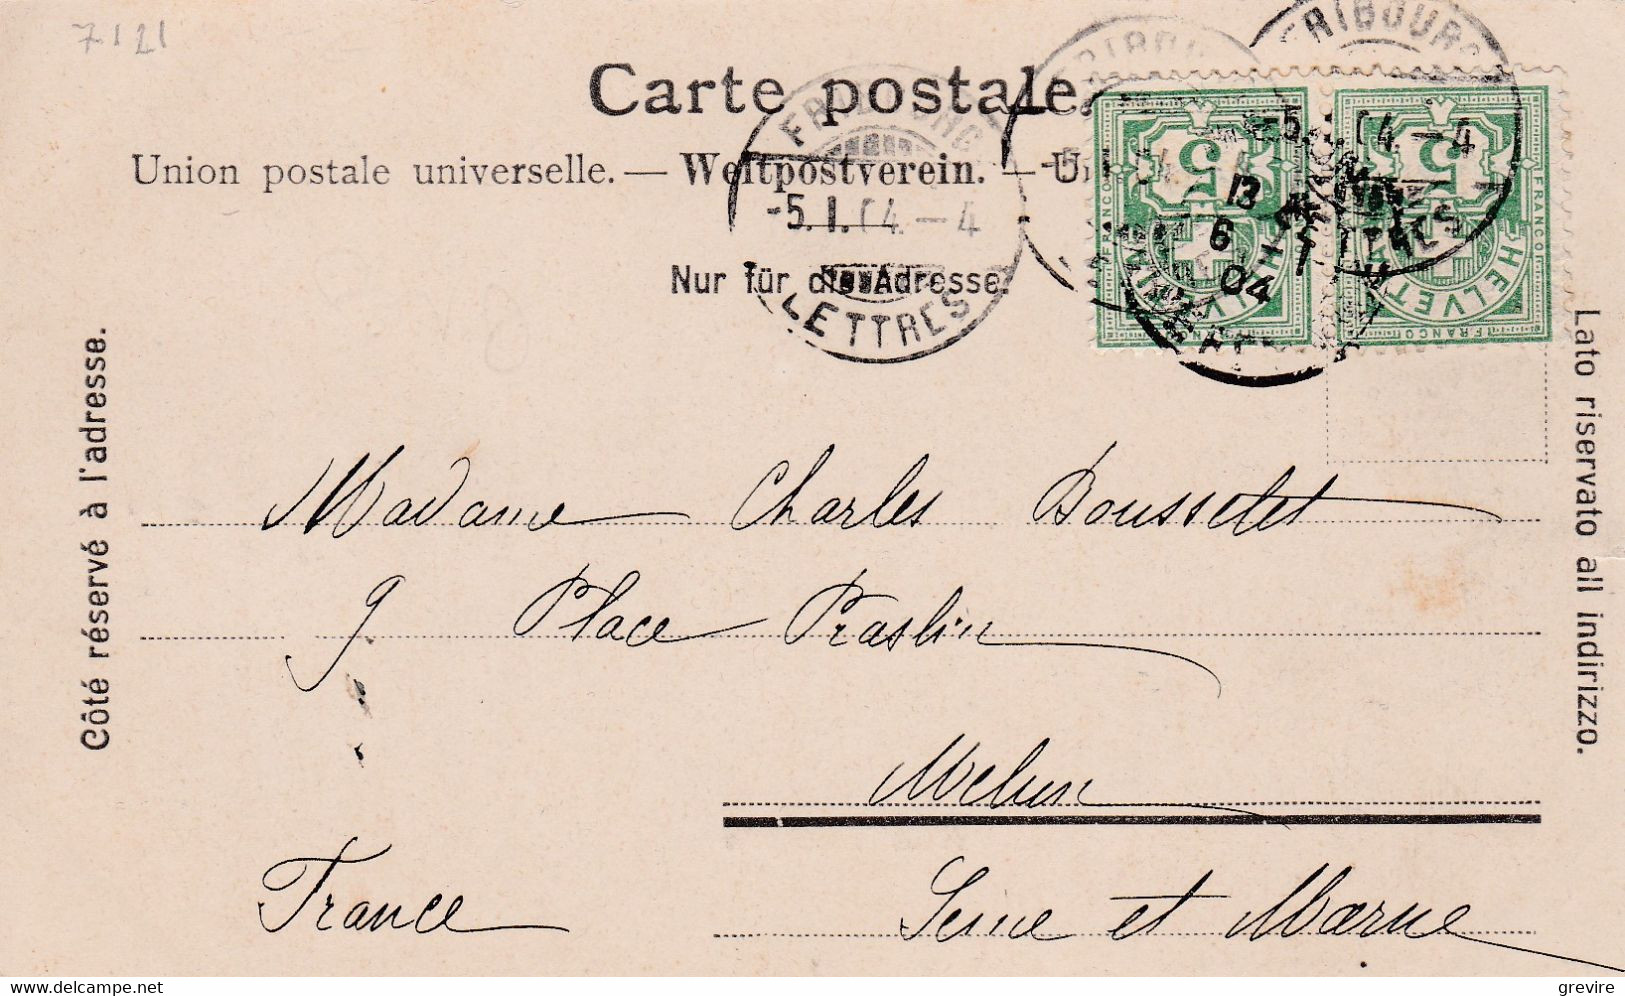 7121
Carte postale.
Union postale universelle. — Weltpostverein. — U
Nur für die Adresse.
Côté réservé à l'adresse.
Lato riservato all indirizzo.
FRIBOURG
-5.I.04.-4
LETTRES
FRIBOURG
-5.I.04.
FRIBOURG
-5.I.04.-4
LETTRES
13
6 1
04
5
FRANCO
HELVETIA
5
FRANCO
HELVETIA
FRANCO
Madame Charles Bousselet
9 Place Praslin
Melun
France Seine et Marne
www.delcampe.net
grevire